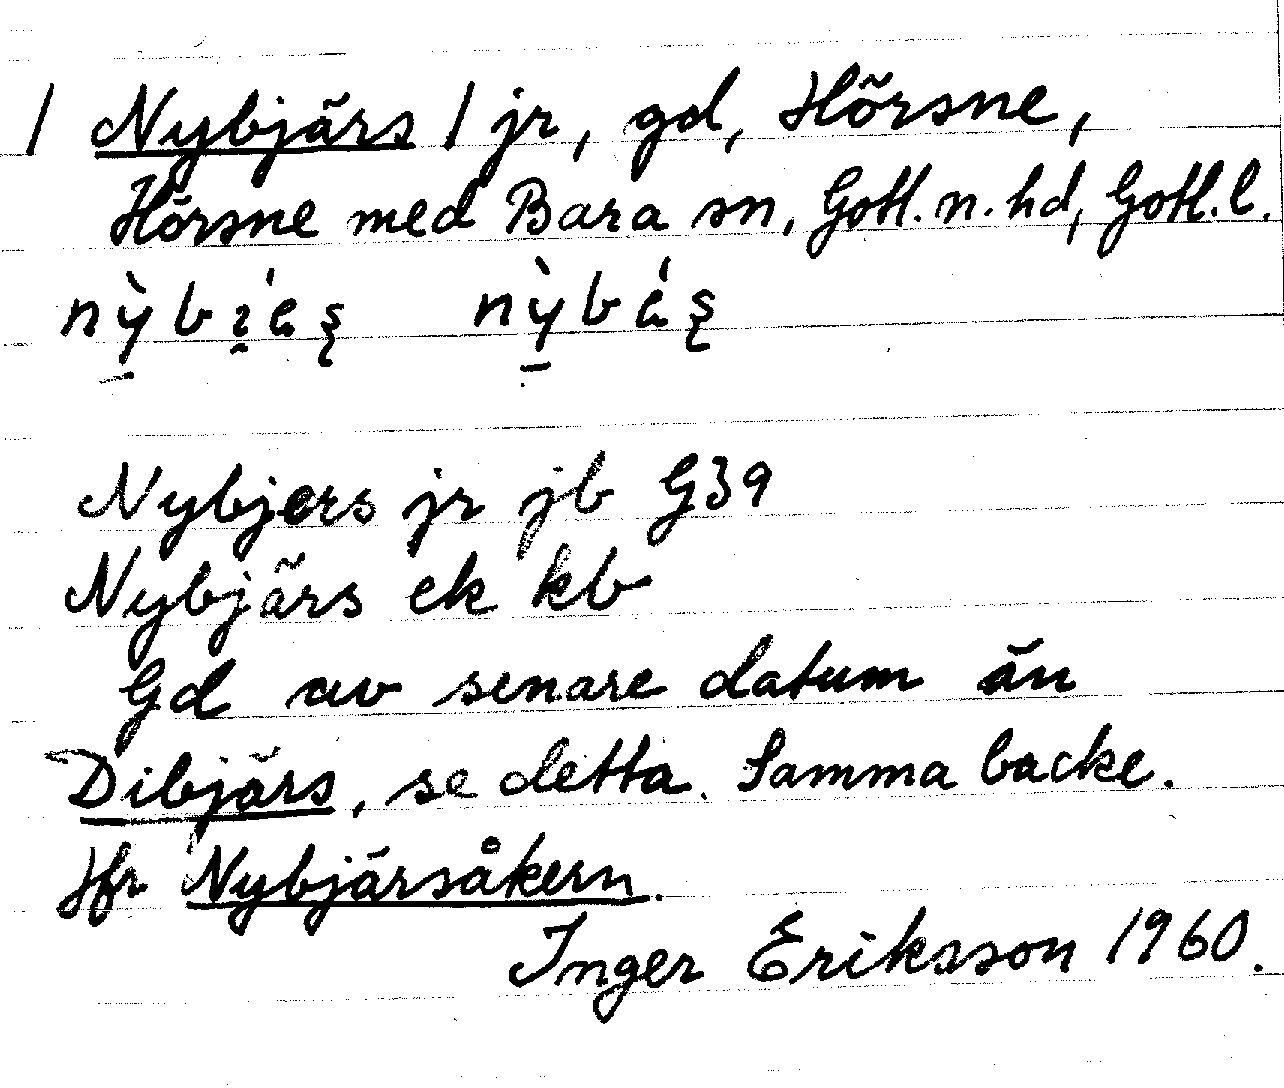 / Nybjärs / jr, gd, Hörsne,
Hörsne med Bara sn, Gotl. n. hd, Gotl. l.
Nybjers jr jb G39
Nybjärs ek kb
Gd av senare datum än
Dibjärs, se detta. Samma backe.
Jfr Nybjärsåkern.
Inger Eriksson 1960.